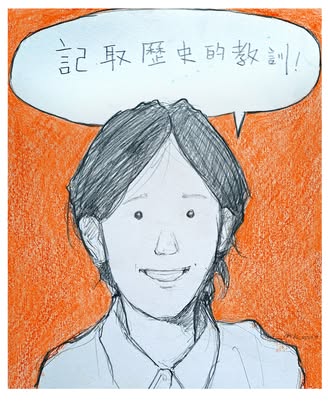 記取歷史的教訓!